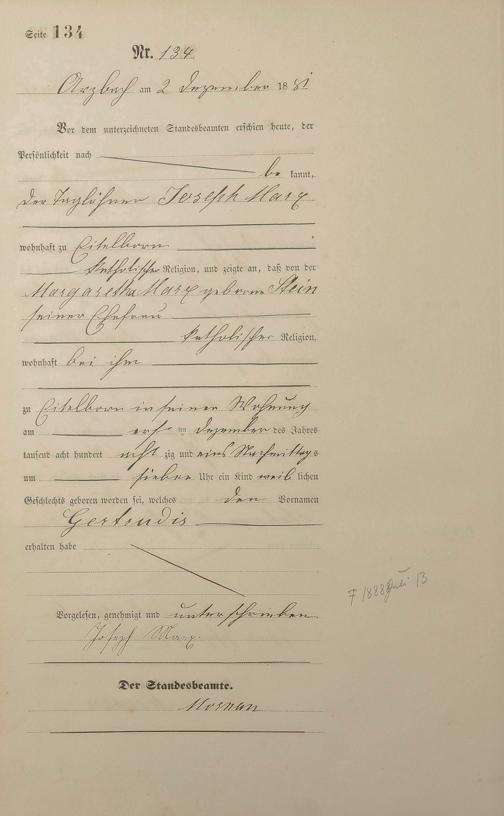 Seite 134
Nr. 134
Arzbach am 2 Dezember 1881
Vor dem unterzeichneten Standesbeamten erschien heute, der
Persönlichkeit nach
be kannt,
der Taglöhner Joseph Marx
wohnhaft zu Eitelborn
katholischer Religion, und zeigte an, daß von der
Margaretha Marx geborne Stein
seiner Ehefrau
katholischer Religion,
wohnhaft bei ihm
zu Eitelborn in seiner Wohnung
am ersten Dezember des Jahres
tausend acht hundert acht zig und eins Nachmittags
um sieben Uhr ein Kind weib lichen
Geschlechts geboren worden sei, welches den Vornamen
Gertrudis
erhalten habe
† 1888 Juli 13
Vorgelesen, genehmigt und unterschrieben
Joseph Marx.
Der Standesbeamte.